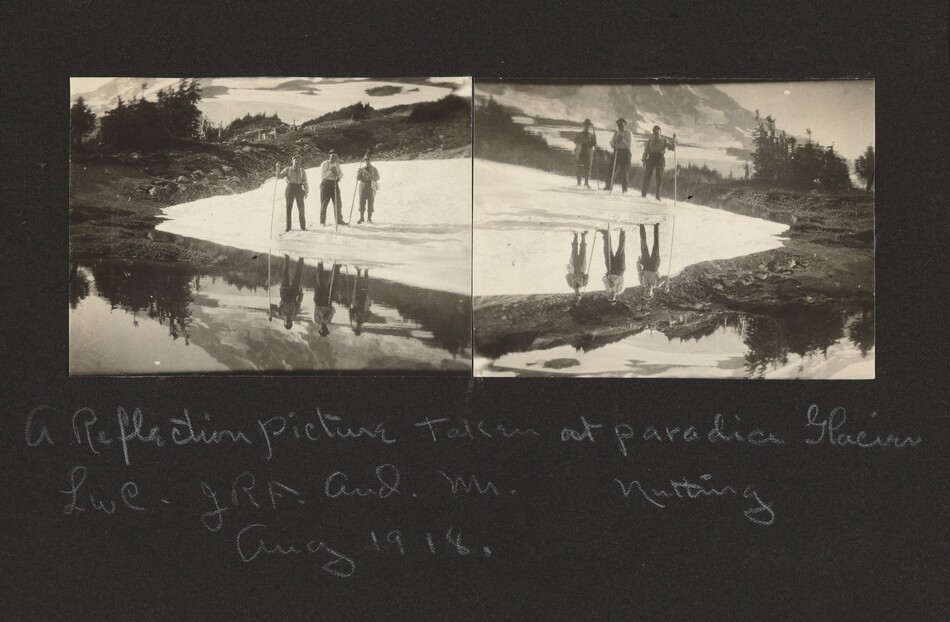 A Reflection picture Taken at paradice Glacier
LWC - JRF. And. Mr. Nutting
Aug 1918.